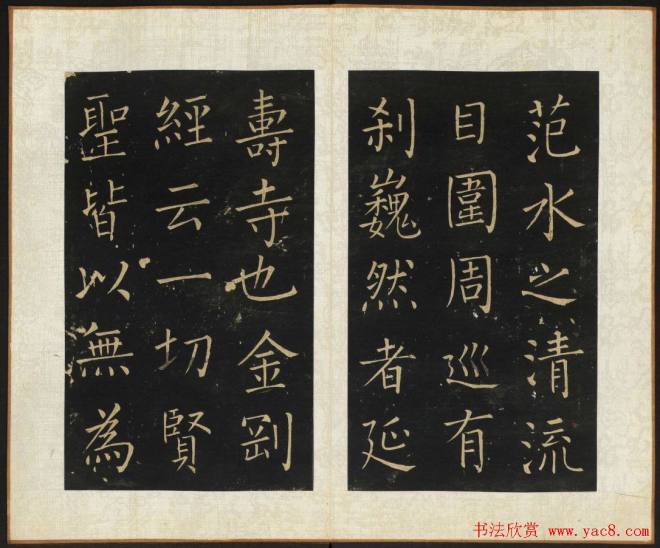 范水之清流
目圍周巡有
刹巍然者延
壽寺也金剛
經云一切賢
聖皆以無為
书法欣赏 www.yac8.com